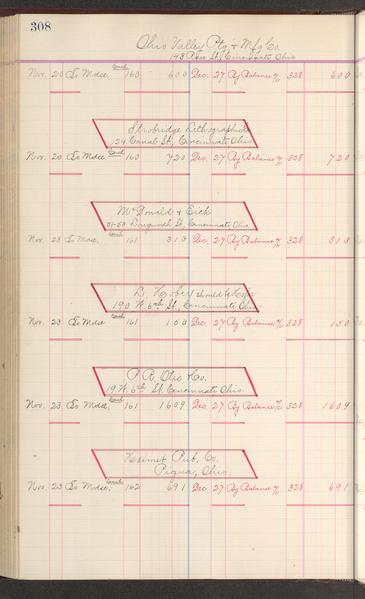 308
Ohio Valley Ptg & Mfg Co.
143 Race St, Cincinnati Ohio
Nov. 20 To Mdse. 160 600 Dec. 27 By Balance 328 600
Strobridge Lithographic
124 Canal St., Cincinnati Ohio
Nov. 20 To Mdse 160 720 Dec. 27 By Balance 328 720
McDonald & Eick
Longworth St, Cincinnati Ohio
Nov. 23 To Mdse. 161 313 Dec. 27 By Balance 328 313
should be
190 W. 6th St., Cincinnati Ohio
Nov. 23 To Mdse 161 150 Dec. 27 By Balance 328 150
P. R. Ohio Co.
19 W. 6th St. Cincinnati Ohio.
Nov. 23 To Mdse. 161 1609 Dec. 27 By Balance 328 1609
Pub. Co.
Piqua, Ohio.
Nov. 23 To Mdse. 162 691 Dec. 27 By Balance 328 691